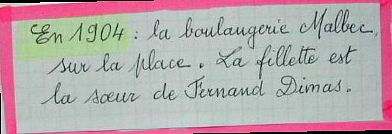 En 1904 : la boulangerie Malbec,
sur la place. La fillette est
la sœur de Fernand Dimas.